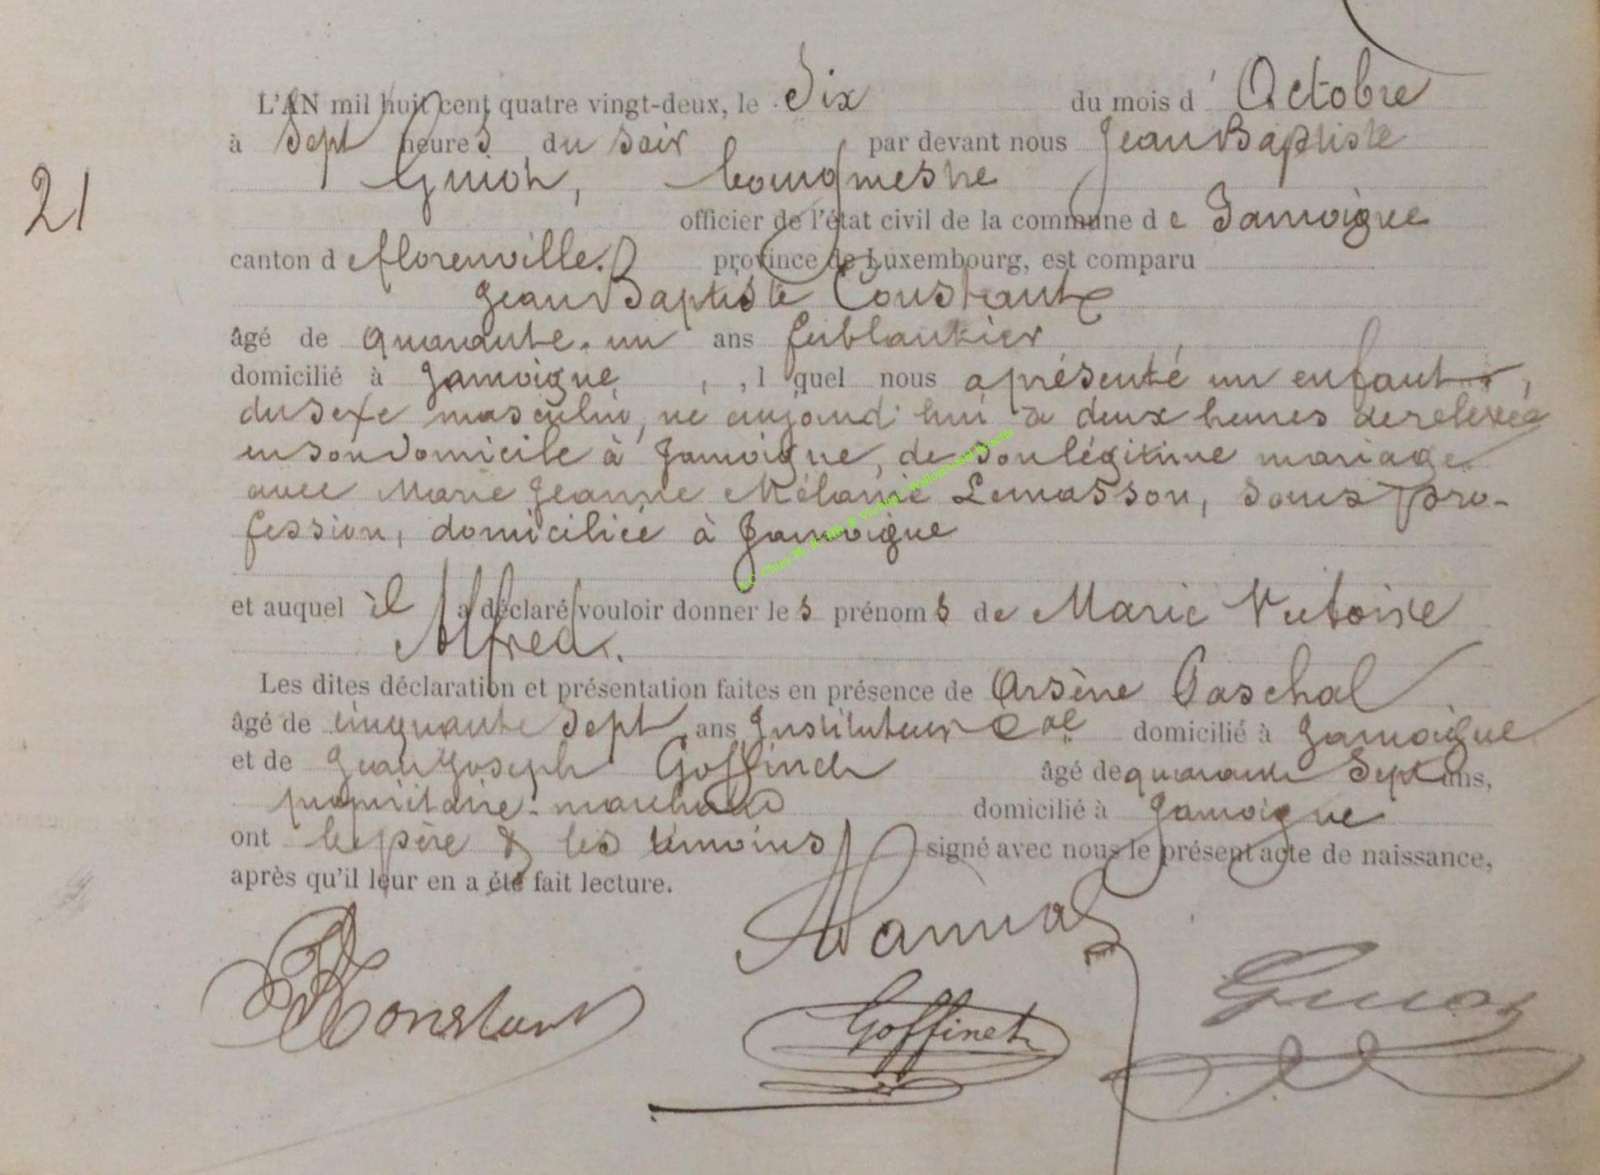 L'AN mil huit cent quatre vingt-deux, le Six du mois d' Octobre
à Sept heures du soir par devant nous Jean Baptiste
21
Guiot, bourgmestre
officier de l'état civil de la commune de Jamoigne
canton de florenville. province de Luxembourg, est comparu
Jean Baptiste Constant
âgé de quarante-un ans ferblantier
domicilié à Jamoigne, , l quel nous a présenté un enfant,
du sexe masculin, né aujourd'hui à deux heures de relevée
en son domicile à Jamoigne, de son légitime mariage
avec Marie Jeanne Mélanie Lemasson, sans pro-
fession, domiciliée à Jamoigne
et auquel il a déclaré vouloir donner les prénoms de Marie Victoire
Alfred.
Les dites déclaration et présentation faites en présence de Arsène Paschal
âgé de cinquante sept ans Instituteur Cal domicilié à Jamoigne
et de Jean Joseph Goffinet âgé de quarante Sept ans,
propriétaire-marchand domicilié à Jamoigne
ont le père & les témoins signé avec nous le présent acte de naissance,
après qu'il leur en a été fait lecture.
Constant
Goffinet
Guiot